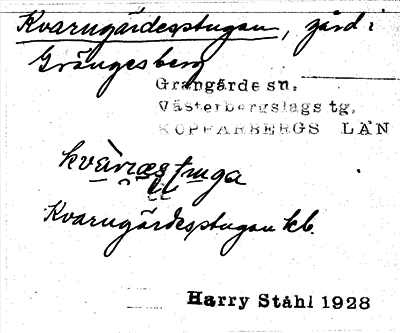 Kvarngärdesstugan, gård i
Grängesberg
Grangärde sn,
Västerbergslags tg,
KOPPARBERGS LÄN
Kvarngärdesstugan kb.
Harry Ståhl 1928